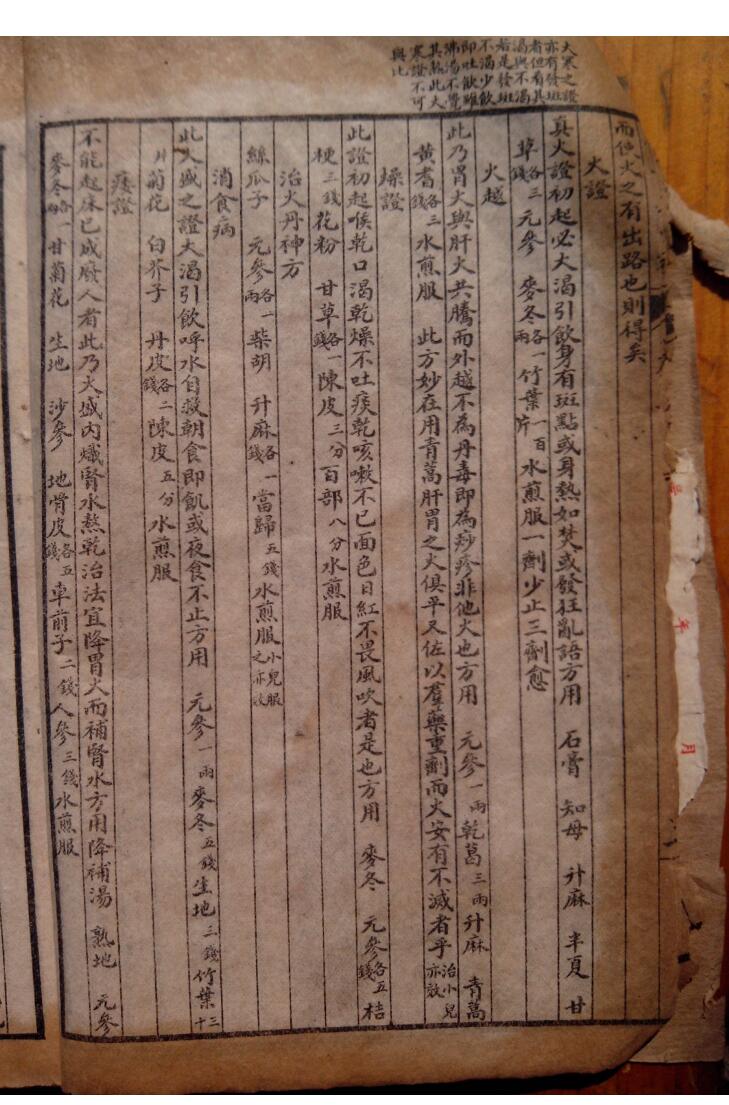 大寒之證
亦有發斑
者但有其
渴與不渴
若是發斑
不渴少飲
即吐飲雖
沸湯不覺
其熱此大
寒證不可
與比
而使火之有出路也則得矣
火證
真火證初起必大渴引飲身有斑點或身熱如焚或發狂亂語方用 石膏 知母 升麻 半夏 甘
草各三錢 元參 麥冬各一兩 竹葉一百片 水煎服一劑少止三劑愈
火越
此乃胃火與肝火共騰而外越不為丹毒即為痧疹非他火也方用 元參一兩 乾葛三兩 升麻 青蒿
黃耆各三錢 水煎服 此方妙在用青蒿肝胃之火俱平又佐以羣藥重劑而火安有不滅者乎治小兒亦效
燥證
此證初起喉乾口渴乾燥不吐痰乾咳嗽不已面色日紅不畏風吹者是也方用 麥冬 元參各五錢 桔
梗三錢 花粉 甘草各一錢 陳皮三分 百部八分 水煎服
治火丹神方
絲瓜子 元參各一兩 柴胡 升麻各一錢 當歸五錢 水煎服小兒服之亦效
消食病
此火盛之證大渴引飲呼水自救朝食即飢或夜食不止方用 元參一兩 麥冬五錢 生地三錢 竹葉三十
片 菊花 白芥子 丹皮各二錢 陳皮五分 水煎服
痿證
不能起床已成廢人者此乃火盛內熾腎水熬乾治法宜降胃火而補腎水方用降補湯 熟地 元參
麥冬各一兩 甘菊花 生地 沙參 地骨皮各五錢 車前子二錢 人參三錢 水煎服
年
月